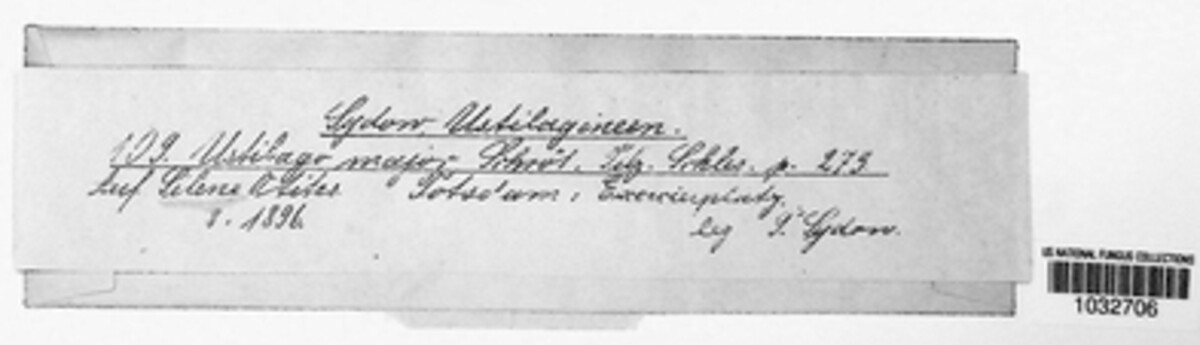 Sydow, Ustilagineen.
109. Ustilago major Schröt. Pilz. Schles. p. 273
Auf Silene Otites Potsdam: Exercierplatz.
8. 1896. leg P. Sydow.
US NATIONAL FUNGUS COLLECTIONS
1032706